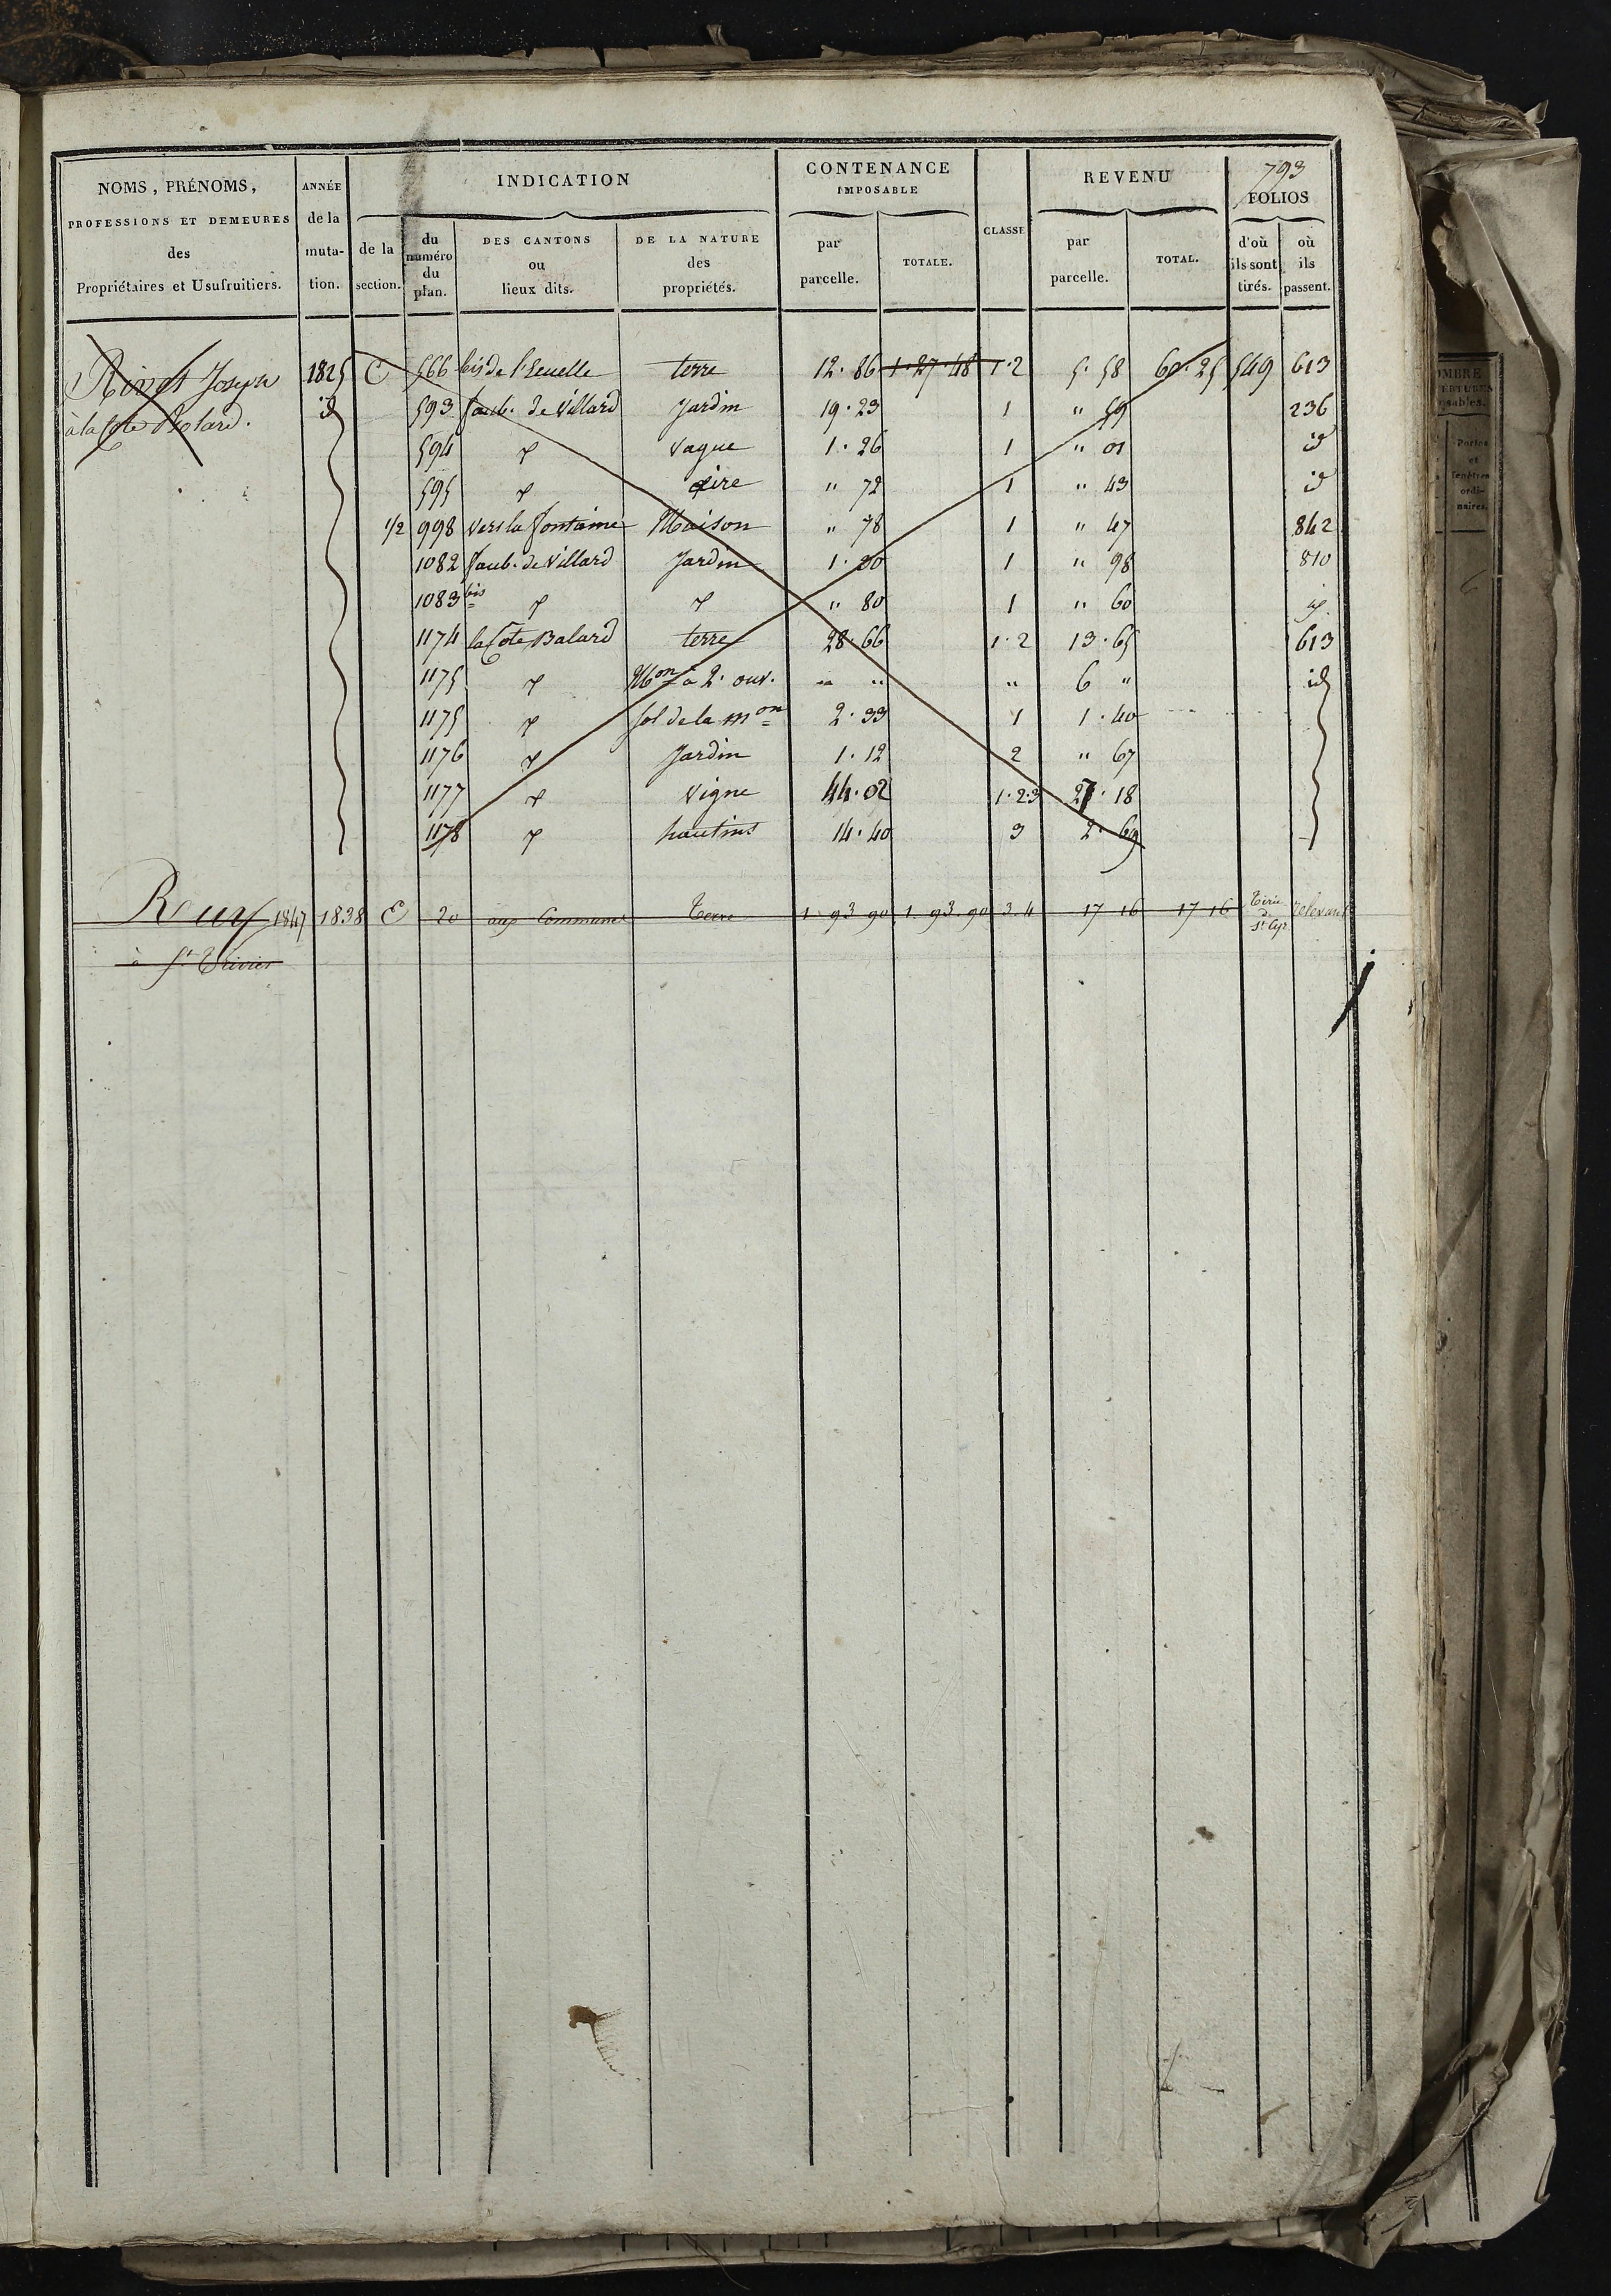 793
NOMS, PRÉNOMS, PROFESSIONS ET DEMEURES des Propriétaires et Usufruitiers.
ANNÉE de la muta- tion.
INDICATION
de la section.
du numéro du plan.
DES CANTONS ou lieux dits.
DE LA NATURE des propriétés.
CONTENANCE IMPOSABLE
par parcelle.
TOTALE.
CLASSE
REVENU
par parcelle.
TOTAL.
FOLIOS
d'où ils sont tirés.
où ils passent.
Joseph 1825 C 566 bis de terre 12.86 1.27.48 1.2 5.58 60.25 549 613
à la Cote Balard. id 593 faub. de Villard Jardin 19.23 1 " 59 236
594 " vague 1.26 1 " 01 id
595 " aire " 72 1 " 43 id
1/2 998 vers la fontaine Maison " 78 1 " 47 842
1082 faub. de Villard Jardin 1.30 1 " 98 810
1083 bis " " " 80 1 " 60 id
1174 la Cote Balard terre 28.66 1.2 13.65 613
1175 " Mon à 2. ouv. " " " 6 " id
1175 " sol de la mon 2.33 1 1.40
1176 " Jardin 1.12 2 " 67
1177 " Vigne 44.02 1.2.3 27.18
1178 " hautins 14.40 3 2.69
1847 1838 E 20 aux Communes Terre 1 93 90 1.93.90 3.4 17 16 17 16 St Cyr
à St Trivier
OMBRE
Portes et fenêtres ordi- naires.